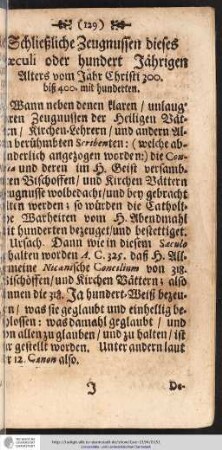 (129)
Schließliche Zeugnussen dieses
æculi oder hundert Jährigen
Alters vom Jahr Christi 300.
biß 400. mit hunderten.
Wann neben denen klaren / unlaug-
ren Zeugnussen der Heiligen Vät-
/ Kirchen-Lehrern / und andern Al-
n berühmbten Scribenten: (welche ab-
nderlich angezogen worden:) die Con-
ia und deren im H. Geist versamb-
en Bischoffen / und Kirchen Vättern
eugnusse wolbedacht / und bey gebracht
lten werden; so würden die Cathol-
e Warheiten vom H. Abendmahl
t hunderten bezeuget / und bestettiget.
Ursach. Dann wie in diesem Sæculo
halten worden A. C. 325. daß H. All-
meine Nicænische Concilium von 318.
Bischöffen / und Kirchen Vättern; also
nnen die 318. Ja hundert-Weiß bezeu-
n / was sie geglaubt und einhellig be-
lossen: was damahl geglaubt / und
n allen zu glauben / und zu halten / ist
r gestellt worden. Unter andern laut
r 12. Canon also.
J
De-